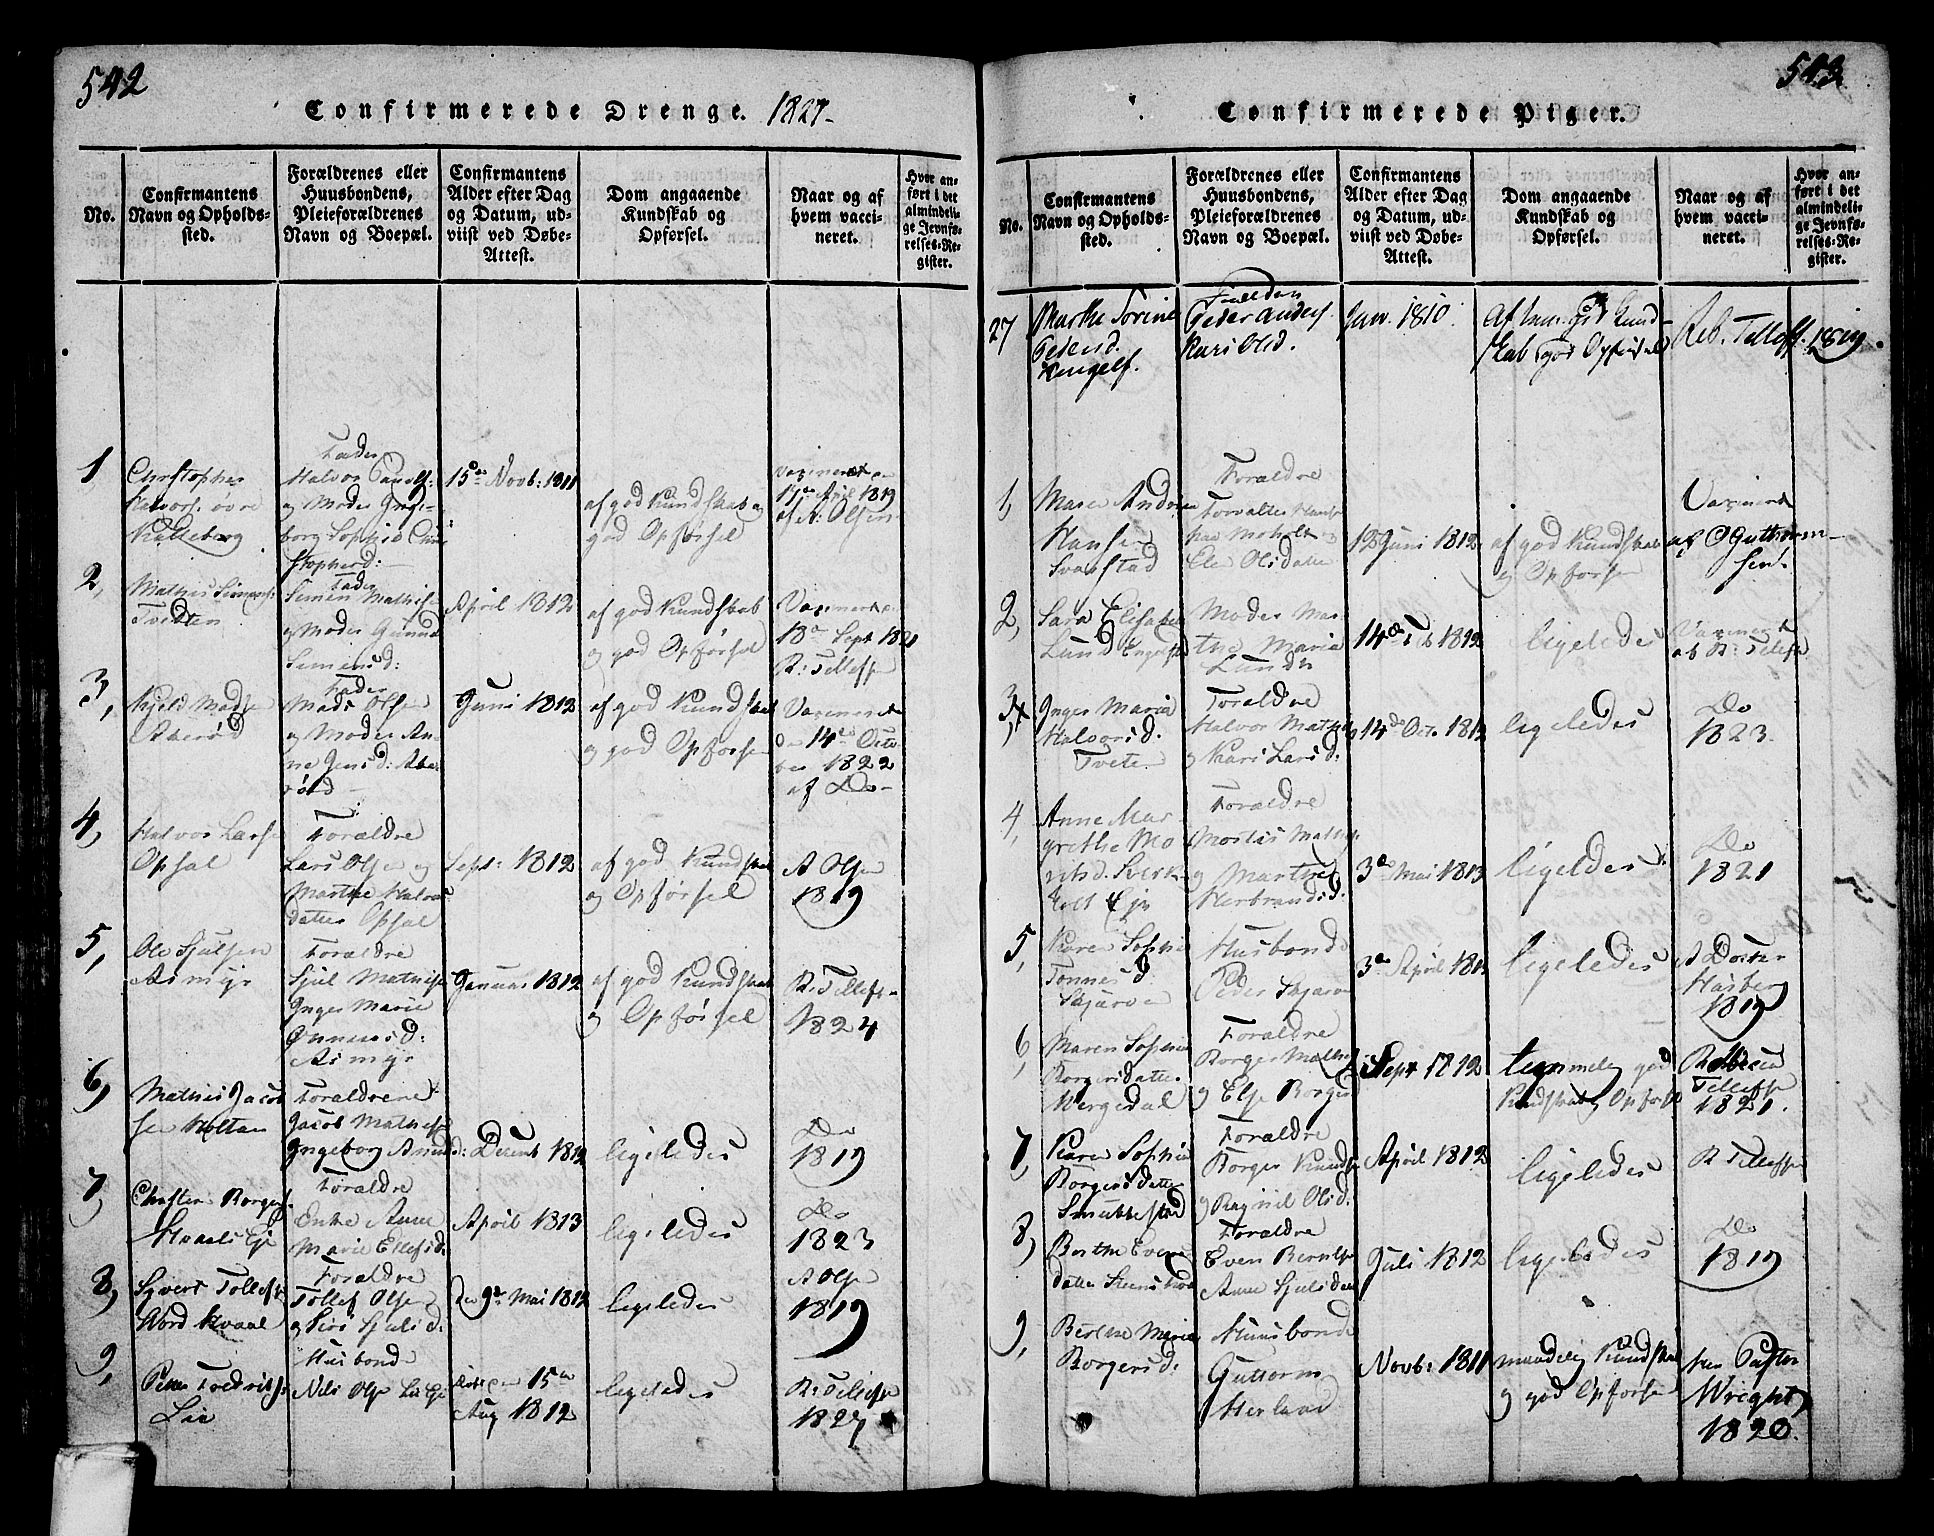 542
Confirmerede Drenge. 1827-
No.
Confirmantens Navn og Opholdssted.
Forældrenes eller Huusbondens, Pleieforældrenes Navn og Boepæl.
Confirmantens Alder efter Dag og Datum, udviist ved Døbe-Attest.
Dom angaaende Kundskab og Opførsel.
Naar og af hvem vaccineret.
Hvor anført i det almindelige Jevnførelses-Register.
1
Christopher
Halvors. øvre
Kalleberg
Fader
Halvor
og Moder
borg Sophie
stopherd:
15de Novb: 1811
af god Kundskab og
god Opførsel
1819
af A: Olsen
2,
Mathis Simens:
Tvedten
Fader
Simen Mathis-
og Moder Gunild
Simensd:
April 1812
af god Kundskab
og god Opførsel
18de Sept 1821
R: Tellefs
3,
Kield Mads
Aberød
Fader
Mads Olsen
og Moder An-
ne Jensd: Abe-
rød
Juni 1812
af god Kundskab
og god Opførsel
14de Octo
ber 1822
af Do-
4,
Halvor Larse
Opsal
Foraldre
Lars Olsen og
Marthe Halvors
datter Opsal
Sept: 1812
af god Kundskab
og Opførsel
A Olsen
1819
5,
Ole Sjulsen
Asmyr
Foraldre
Sjul Mathise
Inger Marie
Asmyr
Januar 1812
af god Kundskab
og Opførsel
R: Tellefs-
1824
6,
Mathis Jacob
sen Holtan
Foraldrene
Jacob Mathiss
Ingeborg Amund
d: Decemb 1812
ligeledes
Do
1819
7,
Borgers
Foraldre
Enke Anne
Marie Ellefsd.
April 1813
ligeledes
Do
1823
8,
Syvert Tollefse
Nord Kvaal
Foraldre
Tollef Olsen
og Siri Sjulsd:
den 9de Mai 1812
ligeledes
A Olse
1819
9,
Lie
Husbond
Nils Olse Lie
15de
Aug 1812
ligeledes
R: Tellefse
1827
543
Confirmerede Piger.
No.
Confirmantens Navn og Opholdssted.
Forældrenes eller Huusbondens, Pleieforældrenes Navn og Boepæl.
Confirmantens Alder efter Dag og Datum, udviist ved Døbe-Attest.
Dom angaaende Kundskab og Opførsel.
Naar og af hvem vaccineret.
Hvor anført i det almindelige Jevnførelses-Register.
27
Marthe Sorine
Pedersd.
Peder Anders.
Kari Olsd.
Jan. 1810.
skab god Opførsel
Reb. Tellefs. 1819.
1,
Maren Andrea
Hansen
Svanstad
Foraldre
Forvalter Hans
Else Olsdatter
12 Juni 1812
af god Kundskab
og Opførsel
af O Guthorm-
sen.
2,
Sara Elisabet
Lund
Moder Mar-
the Maria
Lund
14de Feb 1812
ligeledes
af R: Tellefs
3,
Inger Maria
Halvorsd.
Tveten
Foraldre
Halvor Mathis
og Kari Larsd:
14de Oct. 1812
ligeledes
Do
1823.
4,
Anne Mar-
grethe Mo
Foraldre
og Marthe
Herbrandsd:
3de Mai 1813
ligeledes
Do
1821
5,
Karen Sophie
Tonnesd
Skjarve
Husbond
Peder Skjarve
3de April 1812
ligeledes
Husberg
1819
6,
Maren Sophia
Borgersdatter
Foraldre
Borger Mathis
og Else Borgersd
Sept 1812
temmelig god
Kundskab og Opførsel
Tellefse
1821.
7,
Karen Sophia
Borgersdatter
Smukkestad
Foraldre
Borger Knudse
og Ragnil Olsd.
April 1812
ligeledes
R Tellefse
8,
Berthe Evens
datter
Foraldre
Even
Anne Sjulsdatter
Juli 1812
ligeledes
Do
1819
9,
Berthe Maria
Borgersd:
Huusbond
Guttorm
Novb: 1811
maadelig Kundskab
og god Opførsel
Paster
Wright
1820.